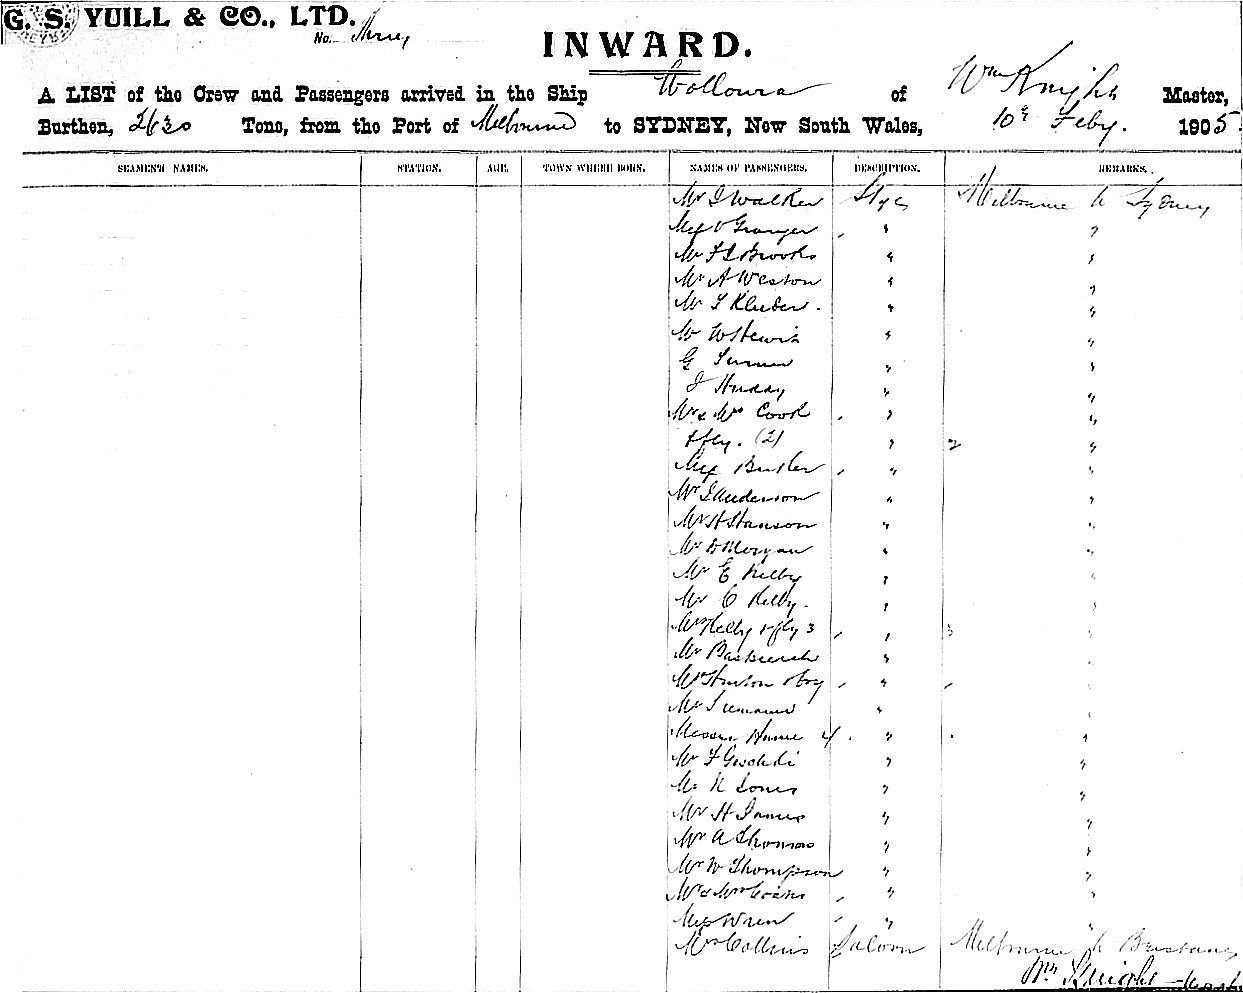 G. S. YUILL & CO., LTD.
No.
INWARD.
A LIST of the Crew and Passengers arrived in the Ship Wolloura of Wm Knight Master,
Burthen, 2630 Tons, from the Port of Melbourne to SYDNEY, New South Wales, 10th Feby. 1905.
SEAMEN'S NAMES. STATION. AGE. TOWN WHERE BORN. NAMES OF PASSENGERS. DESCRIPTION. REMARKS.
Mr J Walker Melbourne to Sydney
Miss V Granger , " "
Mr F L Brooks " "
Mr A Weston " "
Mr F Kluber. " "
Mr W Hewis " "
G Turner " "
J " "
Mr & Mrs Cook , " "
& fly. (2) " 2 "
Miss Butler , " "
Mr J Anderson " "
Mr H Hanson " "
Mr D Morgan " "
Mr E Kelby " "
Mr C Kelby. " "
Mrs Kelby & fly 3 , " 3 "
Mr " "
Mrs Hinton & boy , " , "
Mr " "
Messrs Hume 4 . " . "
Mr F " "
Mr N Jones " "
Mr H James " "
Mr A Thomas " "
Mr W Thompson " "
Mr & Mrs , " "
Miss Wren , " "
Mrs Collins Saloon Melbourne to Brisbane
Wm Knight Master